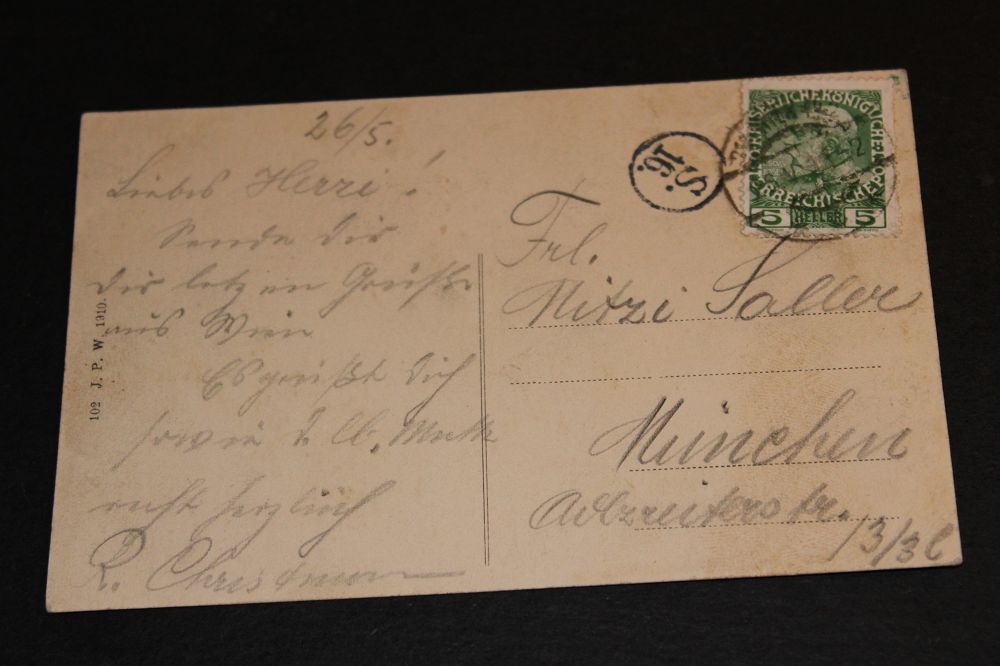 26/5.
Liebes Herzi!
Sende dir
die letzen Grüße
aus Wien
Es grüßt dich
sowie d. lb. Mutter
recht herzlich
R.
102 J. P. W. 1910.
KAISERLICHE KÖNIGLICHE
ÖSTERREICHISCHE POST
5 HELLER 5
16.
Frl.
Mitzi Saller
München
Adlzreiterstr.
13/3